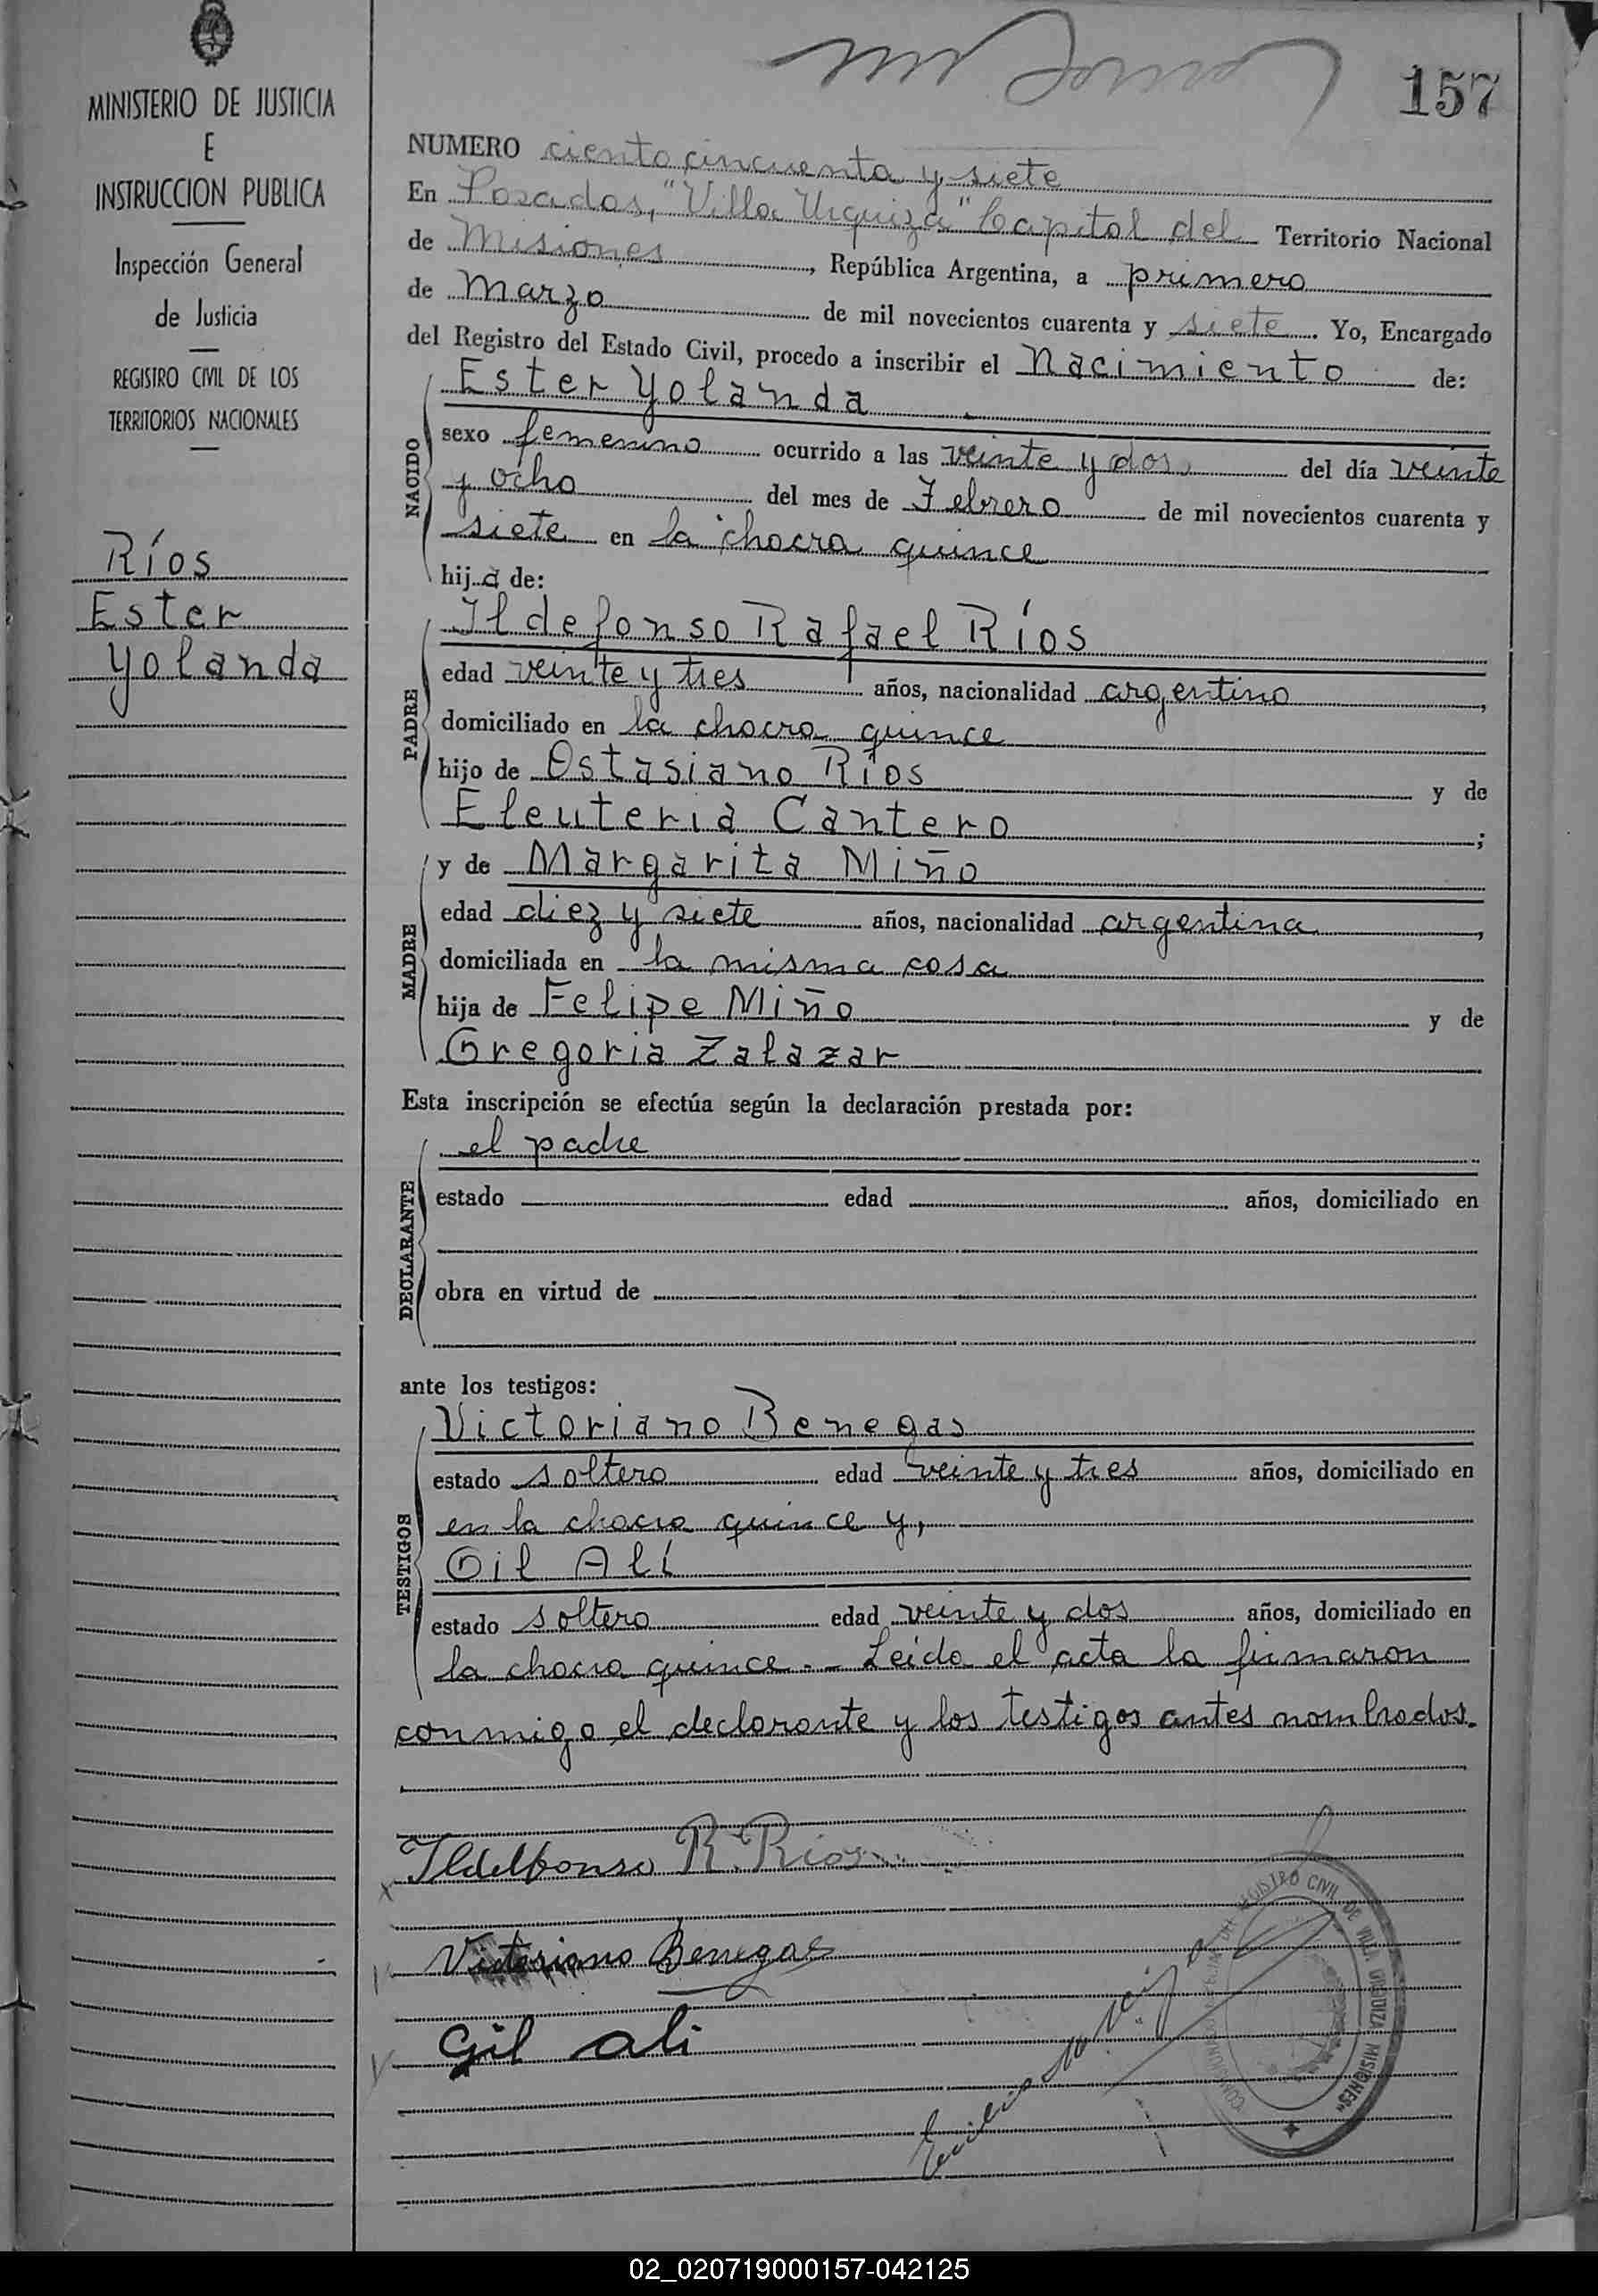 157
MINISTERIO DE JUSTICIA
E
INSTRUCCION PUBLICA
Inspección General
de Justicia
REGISTRO CIVIL DE LOS
TERRITORIOS NACIONALES
Ríos
Ester
Yolanda
NUMERO ciento cincuenta y siete
En Posadas, "Villa Urquiza" Capital del Territorio Nacional
de Misiones, República Argentina, a primero
de Marzo de mil novecientos cuarenta y siete. Yo, Encargado
del Registro del Estado Civil, procedo a inscribir el Nacimiento de:
NACIDO
Ester Yolanda
sexo femenino ocurrido a las veinte y dos del día veinte
y ocho del mes de Febrero de mil novecientos cuarenta y
siete en la chacra quince
hija de:
PADRE
Ildefonso Rafael Ríos
edad veinte y tres años, nacionalidad argentino,
domiciliado en la chacra quince
hijo de Ostasiano Ríos y de
Eleuteria Cantero;
MADRE
y de Margarita Miño
edad diez y siete años, nacionalidad argentina,
domiciliada en la misma casa
hija de Felipe Miño y de
Gregoria Zalazar
Esta inscripción se efectúa según la declaración prestada por:
DECLARANTE
el padre
estado edad años, domiciliado en
obra en virtud de
ante los testigos:
TESTIGOS
Victoriano Benegas
estado soltero edad veinte y tres años, domiciliado en
en la chacra quince y,
Gil Alí
estado soltero edad veinte y dos años, domiciliado en
la chacra quince.- Leida el acta la firmaron
conmigo el declarante y los testigos antes nombrados.
Ildelfonso R. Rios
Victoriano Benegas
Gil ali
REGISTRO CIVIL DE VILLA URQUIZA MISIONES
02_020719000157-042125